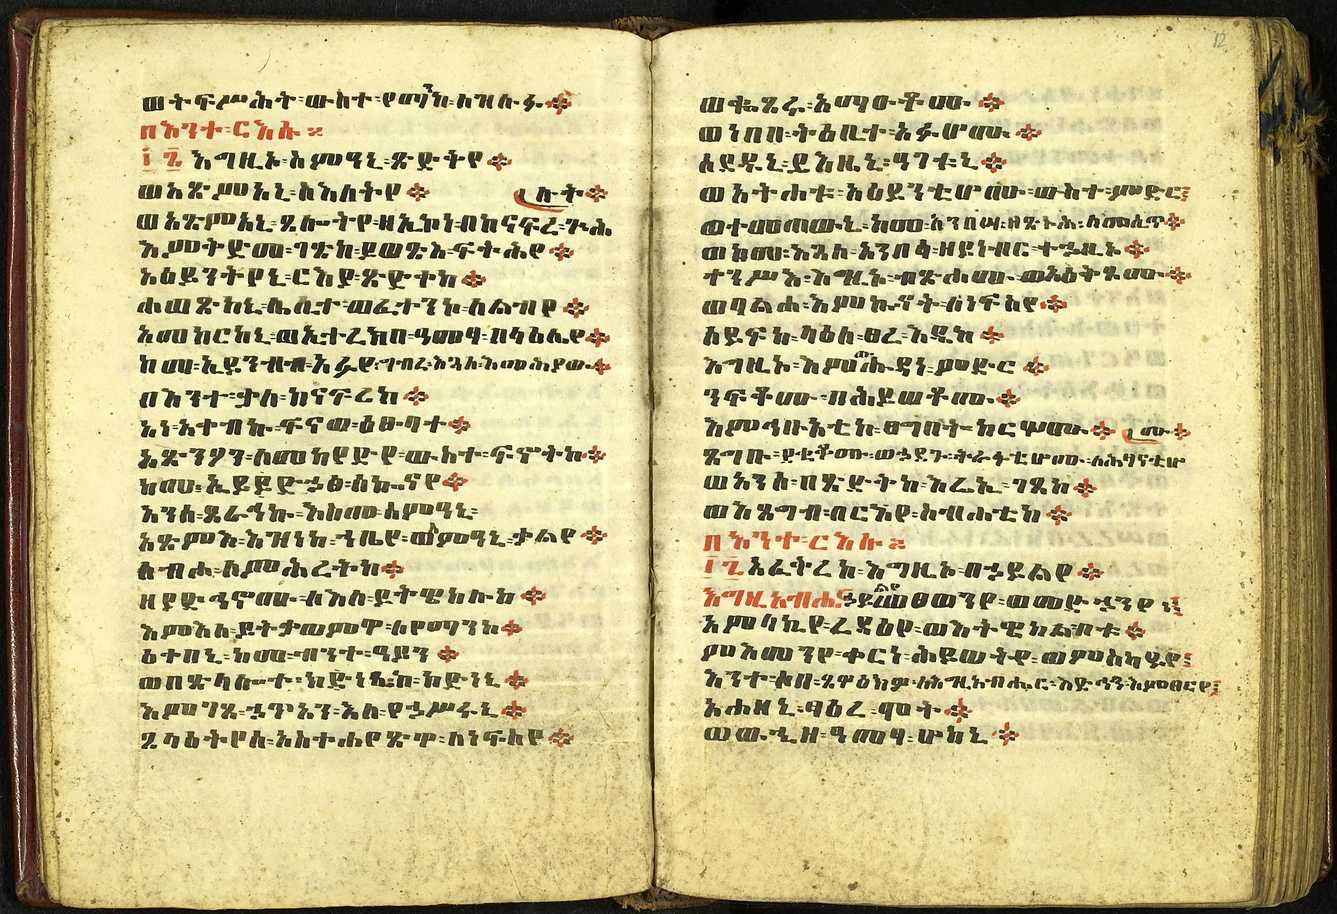 ወትፍሥሕት፡ውስተ፡የማንከ፡ለዝሉፉ።
በእንተ፡ርእሱ።
፲፮ እግዚኦ፡ስምዓኒ፡ጽድቅየ።
ወአጽምአኒ፡ስእለትየ። ሉት።
ወአጽምአኒ፡ጸሎትየ፡ዘኢኮነ፡በከናፍረ፡ጕሕ
እምቅድመ፡ገጽከ፡ይወጽእ፡ፍትሕየ።
አዕይንትየኒ፡ርእያ፡ጽድቀከ።
ሐወጽከኒ፡ሌሊተ፡ወፈተንኮ፡ለልብየ።
አመከርከኒ፡ወኢተረክበ፡ዓመፃ፡በላዕሌየ።
ከመ፡ኢይንብብ፡አፉየ፡ግብረ፡እጓለ፡እመሕያው።
በእንተ፡ቃለ፡ከናፍሪከ።
አነ፡አቀብኩ፡ፍናወ፡ዕፁባተ።
አጽንዖን፡ለመከየድየ፡ውስተ፡ፍኖትከ።
ከመ፡ኢይድኃፅ፡ሰኰናየ።
አንሰ፡ጸራኅኩ፡እስመ፡ሰምዓኒ፡
አጽምእ፡እዝነከ፡ኀቤየ፡ወስምዓኒ፡ቃልየ።
ሰብሖ፡ለምሕረትከ።
ዘያድኅኖሙ፡ለእለ፡ይትዌከሉከ።
እምእለ፡ይትቃወምዋ፡ለየማንከ።
ዕቀበኒ፡ከመ፡ብንተ፡ዓይን።
ወበጽላሎተ፡ክነፊከ፡ክድነኒ።
እምገጸ፡ኃጥኣን፡እለ፡የኃሥሩኒ።
ጸላዕትየሰ፡አስተሐየጽዋ፡ለነፍስየ።
ወቈጸሩ፡አማዑቶሙ።
ወነበበ፡ትዕቢተ፡አፉሆሙ።
ሰደዱኒ፡ይእዜኒ፡ዓገቱኒ።
ወአትሐቱ፡አዕይንቲሆሙ፡ውስተ፡ምድር።
ወተመጠውኒ፡ከመ፡አንበሣ፡ዘጽኑሕ፡ለመሲጥ።
ወከመ፡እጓለ፡አንበሳ፡ዘይነብር፡ተኃቢኦ።
ተንሥእ፡እግዚኦ፡ብጽሖሙ፡ወአዕቅጾሙ።
ወባልሐ፡እምኵናት፡ለነፍስየ።
ሰይፍከ፡ላዕለ፡ፀረ፡እዴከ።
እግዚኦ፡እምውሑዳነ፡ምድር።
ንፍቆሙ፡በሕይወቶሙ።
እምኅቡአቲከ፡ፀግበት፡ከርሦሙ። ሙ።
ጸግቡ፡ደቂቆሙ፡ወኃደጉ፡ትራፋቲሆሙ፡ለሕፃናቲሆ
ወአንሰ፡በጽድቅ፡እሬኢ፡ገጸከ።
ወእጸግብ፡በርእየ፡ስብሐቲከ።
በእንተ፡ርእሱ።
፲፯ አፈቅረከ፡እግዚኦ፡በኃይልየ።
እግዚአብሔር፡ኃይልየ፡ፀወንየ፡ወመድኃንየ፡
አምላኪየ፡ረዳዕየ፡ወእትዌከል፡ቦቱ።
ምእመንየ፡ቀርነ፡ሕይወትየ፡ወምስካይየ፡
እንተ፡ቦቱ፡እጼውዖ፡ለእግዚአብሔር፡እድኅን፡እምፀርየ፡
አሐዘኒ፡ፃዕረ፡ሞት።
ወውኂዘ፡ዓመፃ፡ሆከኒ።